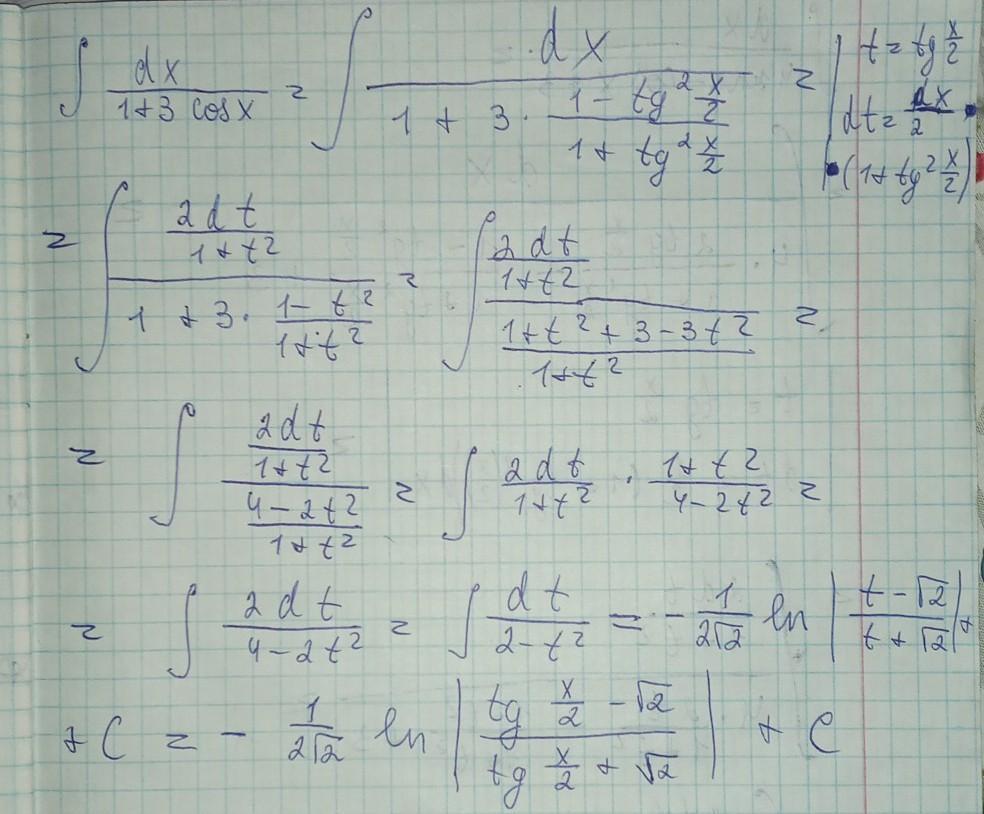 ∫ dx / (1+3 cosx) = ∫ dx / (1 + 3 · (1 - tg² x/2) / (1 + tg² x/2)) = | t = tg x/2
dt = dx/2 ·
· (1 + tg² x/2)
= ∫ (2dt / (1+t²)) / (1 + 3 · (1 - t²) / (1+t²)) = ∫ (2dt / (1+t²)) / ((1+t² + 3 - 3t²) / (1+t²)) =
= ∫ (2dt / (1+t²)) / ((4 - 2t²) / (1+t²)) = ∫ 2dt / (1+t²) · (1+t²) / (4 - 2t²) =
= ∫ 2dt / (4 - 2t²) = ∫ dt / (2 - t²) = - 1 / (2√2) ln | (t - √2) / (t + √2) | +
+ C = - 1 / (2√2) ln | (tg x/2 - √2) / (tg x/2 + √2) | + C